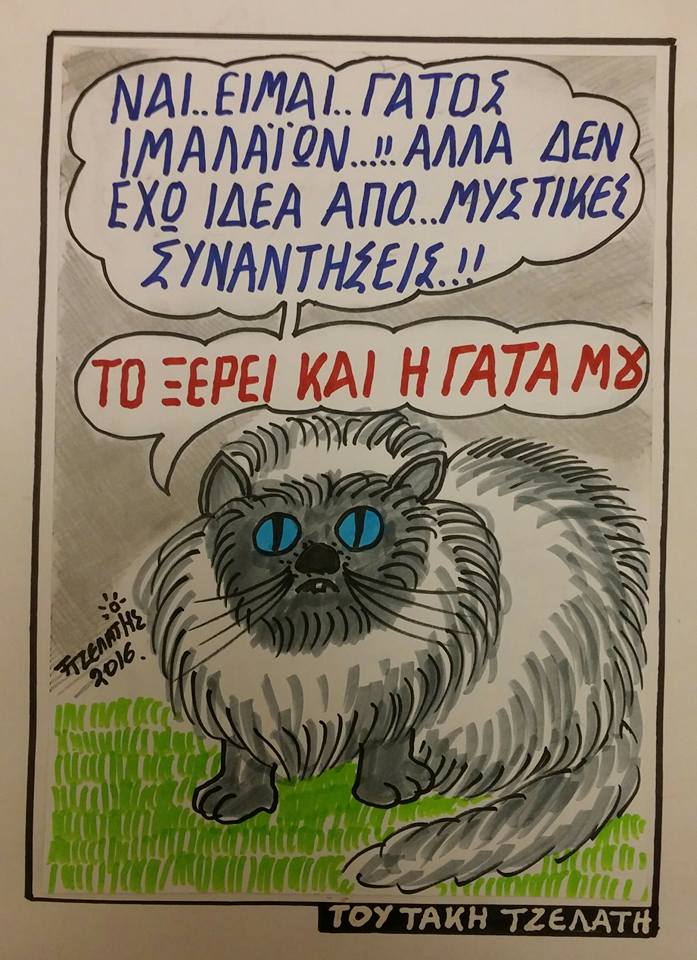 ΝΑΙ..ΕΙΜΑΙ..ΓΑΤΟΣ
ΙΜΑΛΑΪΩΝ...!! ΑΛΛΑ ΔΕΝ
ΕΧΩ ΙΔΕΑ ΑΠΟ...ΜΥΣΤΙΚΕΣ
ΣΥΝΑΝΤΗΣΕΙΣ..!!
ΤΟ ΞΕΡΕΙ ΚΑΙ Η ΓΑΤΑ ΜΟΥ
ΤΤΖΕΛΑΤΗΣ
2016.
ΤΟΥ ΤΑΚΗ ΤΖΕΛΑΤΗ